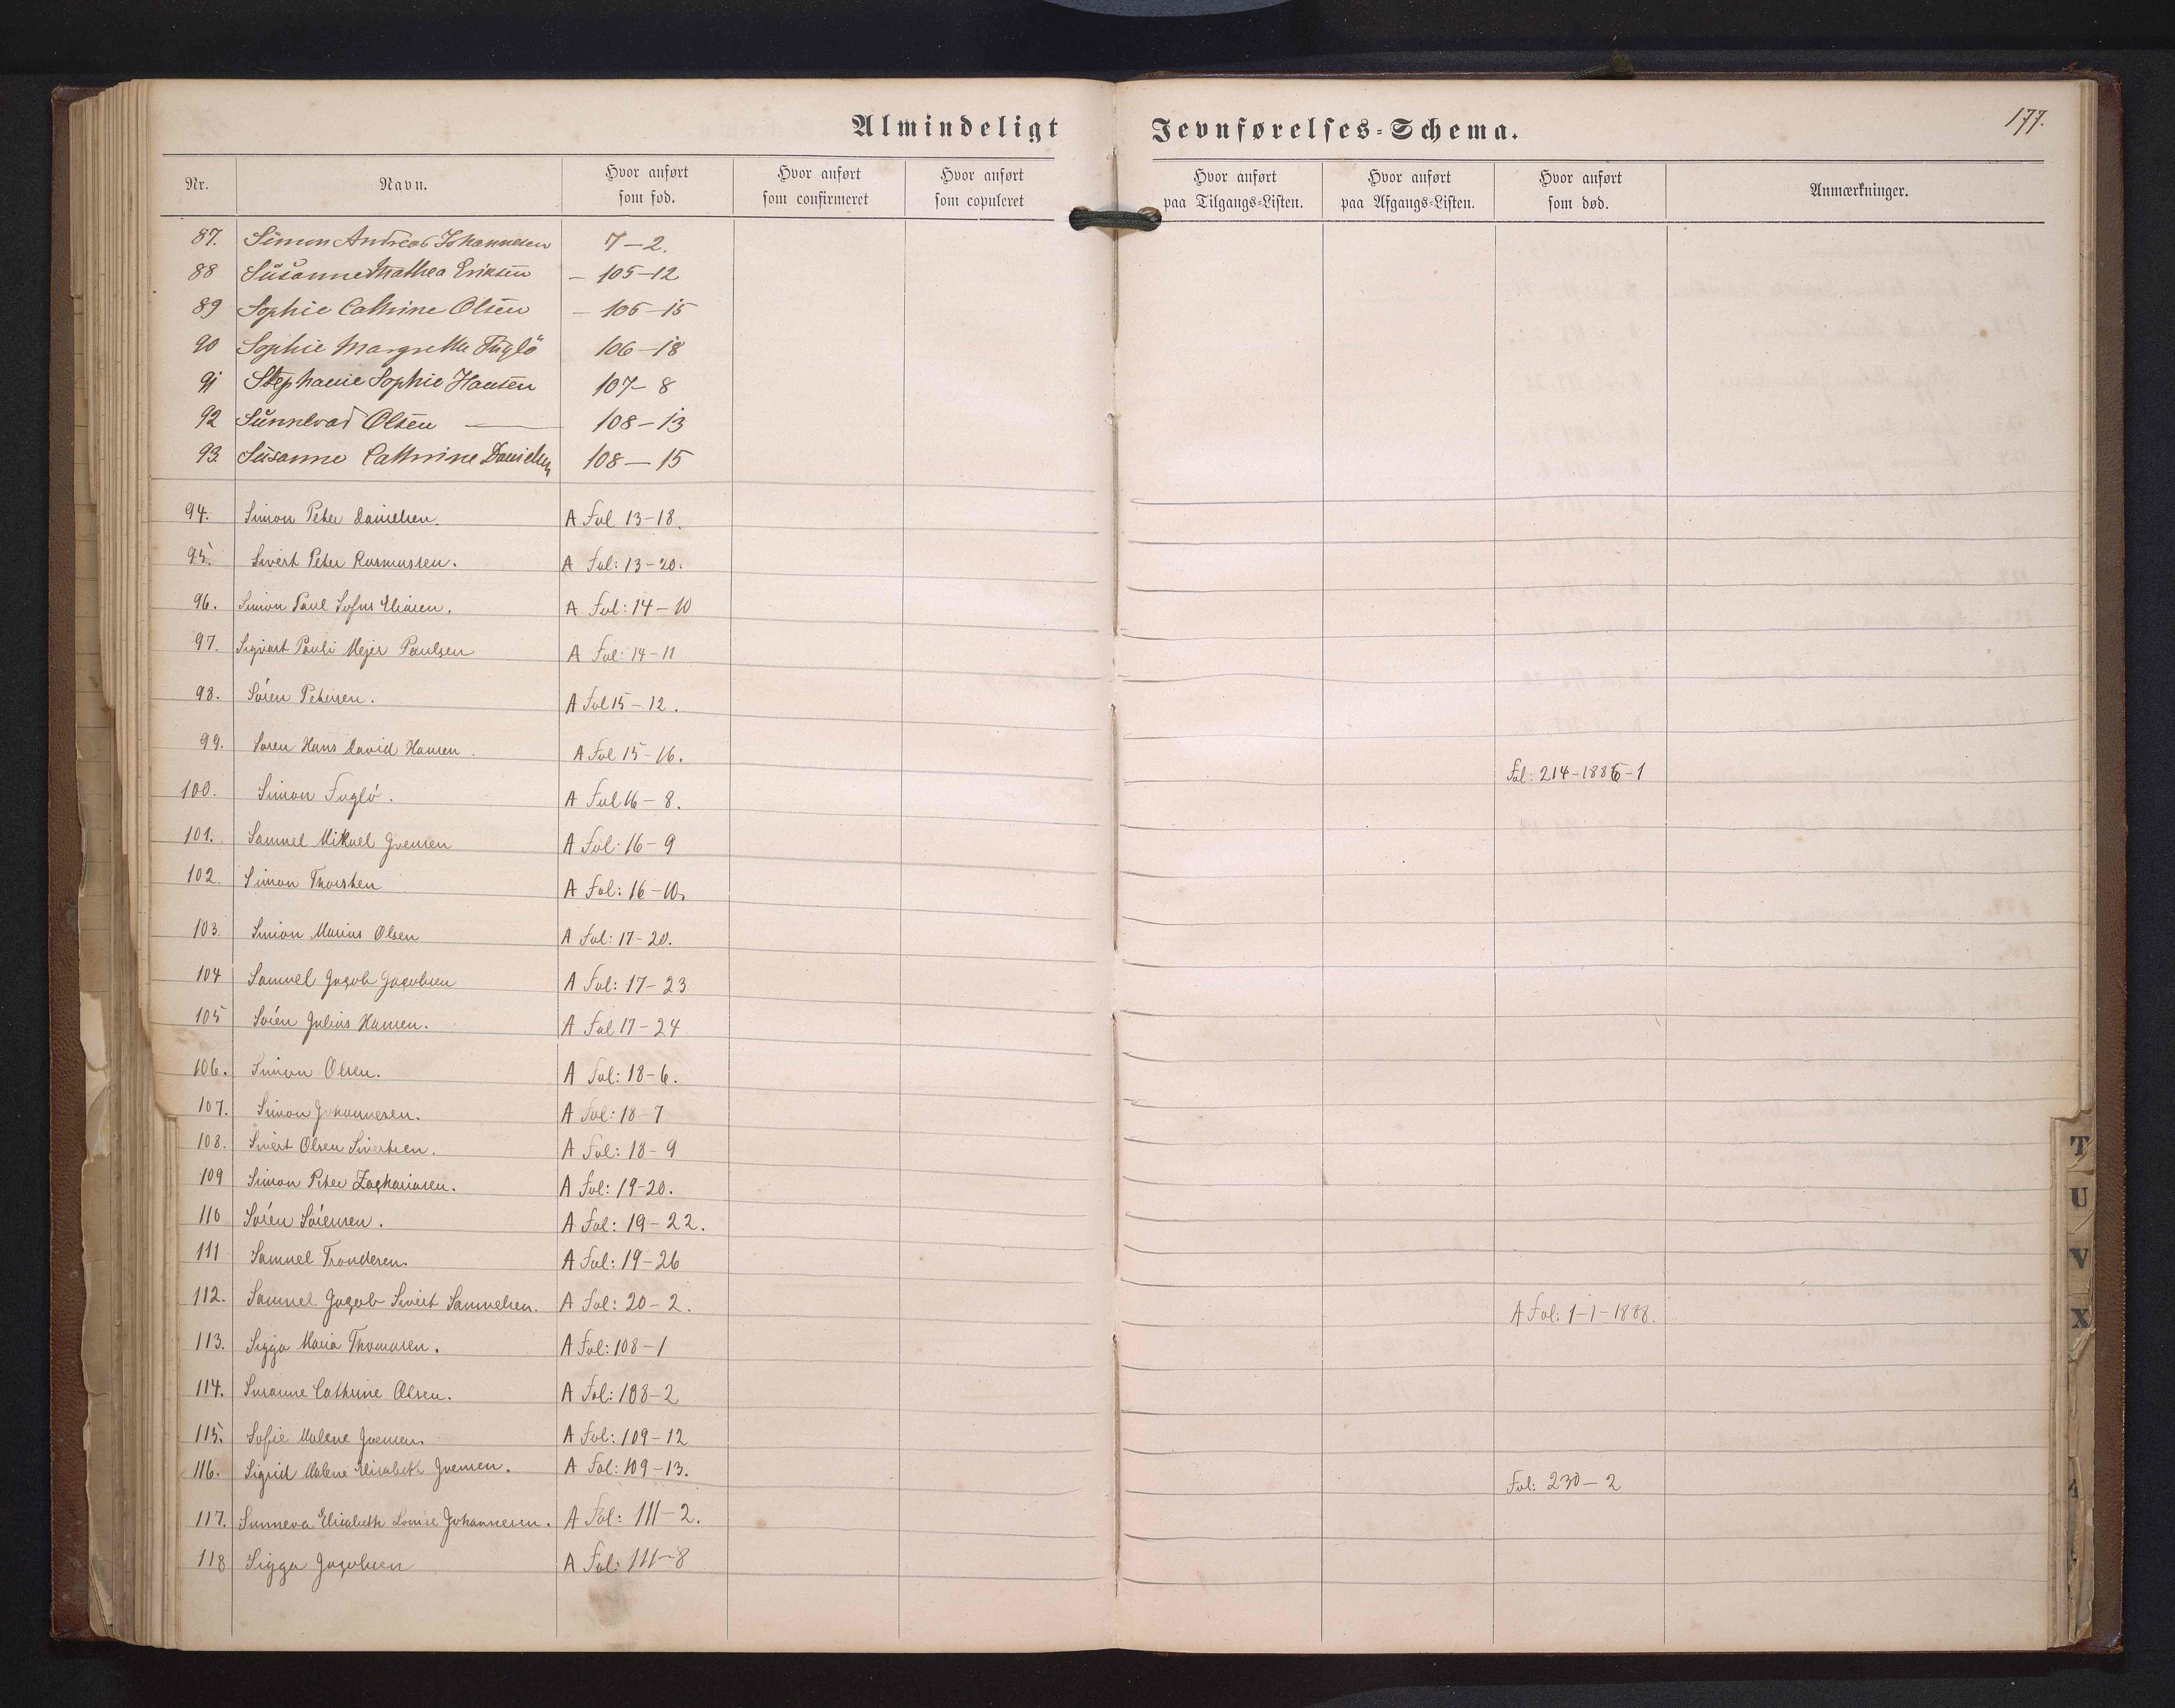 Almindeligt Jevnførelses-Schema.
177.
Nr. Navn. Hvor anført som fød. Hvor anført som confirmeret Hvor anført som copuleret Hvor anført paa Tilgangs-Listen. Hvor anført paa Afgangs-Listen. Hvor anført som død. Anmærkninger.
87. Simon Andreas Johannesen 7-2.
88 Susanne Mathea Eriksen - 105-12
89 Sophie Cathrine Olsen - 106-15
90 Sophie Margrethe Fuglö 106-18
91 Stephanie Sophie Hansen 107-8
92 Sunnevad Olsen — 108-13
93. Susanne Cathrine Danielsen 108-15
94. Simon Peter Danielsen. A Fol 13-18.
95. Sivert Peter Rasmussen. A Fol: 13-20.
96. Simon Paul Sofus Eliasen. A Fol: 14-10
97. Sigvart Pauli Mejer Paulsen A Fol: 14-11
98. Sören Petersen. A Fol 15-12.
99. Sören Hans David Hansen. A Fol 15-16. Fol: 214-1886-1
100. Simon Fuglö. A Fol 16-8.
101. Samuel Mikael Joensen A Fol: 16-9
102. Simon Thorsten A Fol: 16-10.
103. Simon Marius Olsen A Fol: 17-20.
104 Samuel Jacob Jacobsen A Fol: 17-23
105 Sören Julius Hansen. A Fol 17-24
106. Simon Olsen. A Fol: 18-6.
107. Simon Johannesen. A Fol: 18-7
108. Sivert Olsen Sivertsen. A Fol: 18-9
109 Simon Peter Zachariasen. A Fol: 19-20.
110 Sören Sörensen. A Fol: 19-22.
111 Samuel Trondesen. A Fol: 19-26
112. Samuel Jacob Sivert Samuelsen. A Fol: 20-2. A Fol: 1-1-1888.
113. Sigga Maria Thomasen. A Fol: 108-1
114. Susanne Cathrine Olsen. A Fol: 108-2
115. Sofie Malene Joensen. A Fol: 109-12
116. Sigrid Malene Elisabeth Joensen. A Fol: 109-13. Fol: 230-2
117. Sunneva Elisabeth Louise Johannesen. A Fol: 111-2.
118 Sigga Jacobsen A Fol: 111-8
T
U
V
X